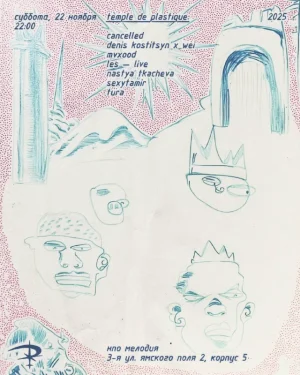 суббота, 22 ноября
22:00
temple de plastique
2025
cancelled
denis kostitsyn x wei
mvxood
les — live
nastya tkacheva
sexytamir
tura
нпо мелодия
3-я ул. ямского поля 2, корпус 5